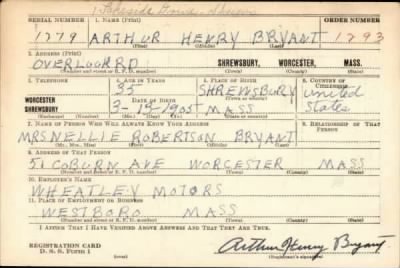 Lakeside Drive - Shrews.
SERIAL NUMBER 1. NAME (Print) ORDER NUMBER
1779 ARTHUR HENRY BRYANT 1293
(First) (Middle) (Last)
2. ADDRESS (Print)
OVERLOOK RD SHREWSBURY, WORCESTER, MASS.
(Number and street or R. F. D. number) (Town) (County) (State)
3. TELEPHONE 4. AGE IN YEARS 5. PLACE OF BIRTH 6. COUNTRY OF CITIZENSHIP
35 SHREWSBURY United
WORCESTER DATE OF BIRTH (Town or county)
SHREWSBURY 3-15-1905 MASS States
(Exchange) (Number) (Mo.) (Day) (Yr.) (State or country)
7. NAME OF PERSON WHO WILL ALWAYS KNOW YOUR ADDRESS 8. RELATIONSHIP OF THAT PERSON
MRS NELLIE ROBERTSON BRYANT
(Mr., Mrs., Miss) (First) (Middle) (Last)
9. ADDRESS OF THAT PERSON
51 COBURN AVE WORCESTER MASS
(Number and street or R. F. D. number) (Town) (County) (State)
10. EMPLOYER'S NAME
WHEATLEY MOTORS
11. PLACE OF EMPLOYMENT OR BUSINESS
WESTBORO MASS
(Number and street or R. F. D. number) (Town) (County) (State)
I AFFIRM THAT I HAVE VERIFIED ABOVE ANSWERS AND THAT THEY ARE TRUE.
REGISTRATION CARD
D. S. S. Form 1 Arthur Henry Bryant
(Registrant's signature)